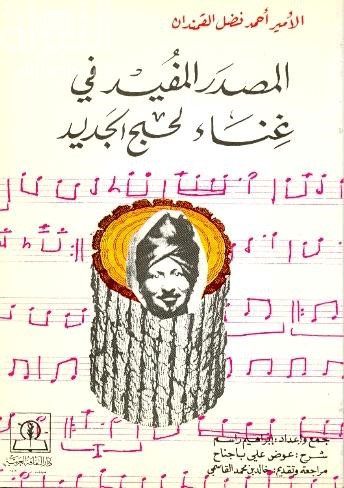 الأمير أحمد فضل القمندان
المصدر المفيد في
غناء لحج الجديد
جمع وإعداد: إبراهيم راسم
شرح: عوض علي باجناح
مراجعة وتقديم: خالد بن محمد القاسمي
دار الثقافة العربية